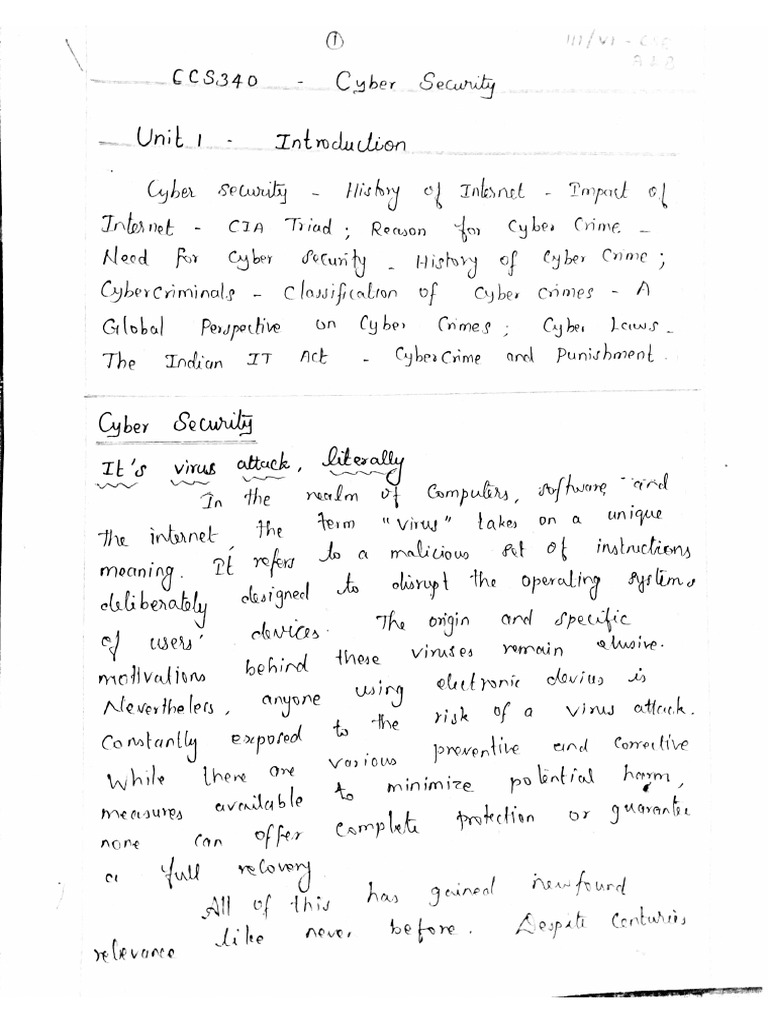 ①
III/VI - CSE
A & B
CCS340 - Cyber Security
Unit 1 - Introduction
Cyber Security - History of Internet - Impact of
Internet - CIA Triad ; Reason for Cyber Crime -
Need for Cyber Security - History of Cyber Crime ;
CyberCriminals - Classification of Cyber crimes - A
Global Perspective on Cyber Crimes ; Cyber Laws -
The Indian IT Act - CyberCrime and Punishment.
Cyber Security
It's virus attack, literally
In the realm of Computers, software, and
the internet, the term "virus" takes on a unique
meaning. It refers to a malicious set of instructions
deliberately designed to disrupt the operating systems
of users' devices. The origin and specific
motivations behind these viruses remain elusive.
Nevertheless, anyone using electronic devices is
Constantly exposed to the risk of a virus attack.
While there are various preventive and corrective
measures available to minimize potential harm,
none can offer complete protection or guarantee
a full recovery
All of this has gained newfound
relevance like never before. Despite Centuries